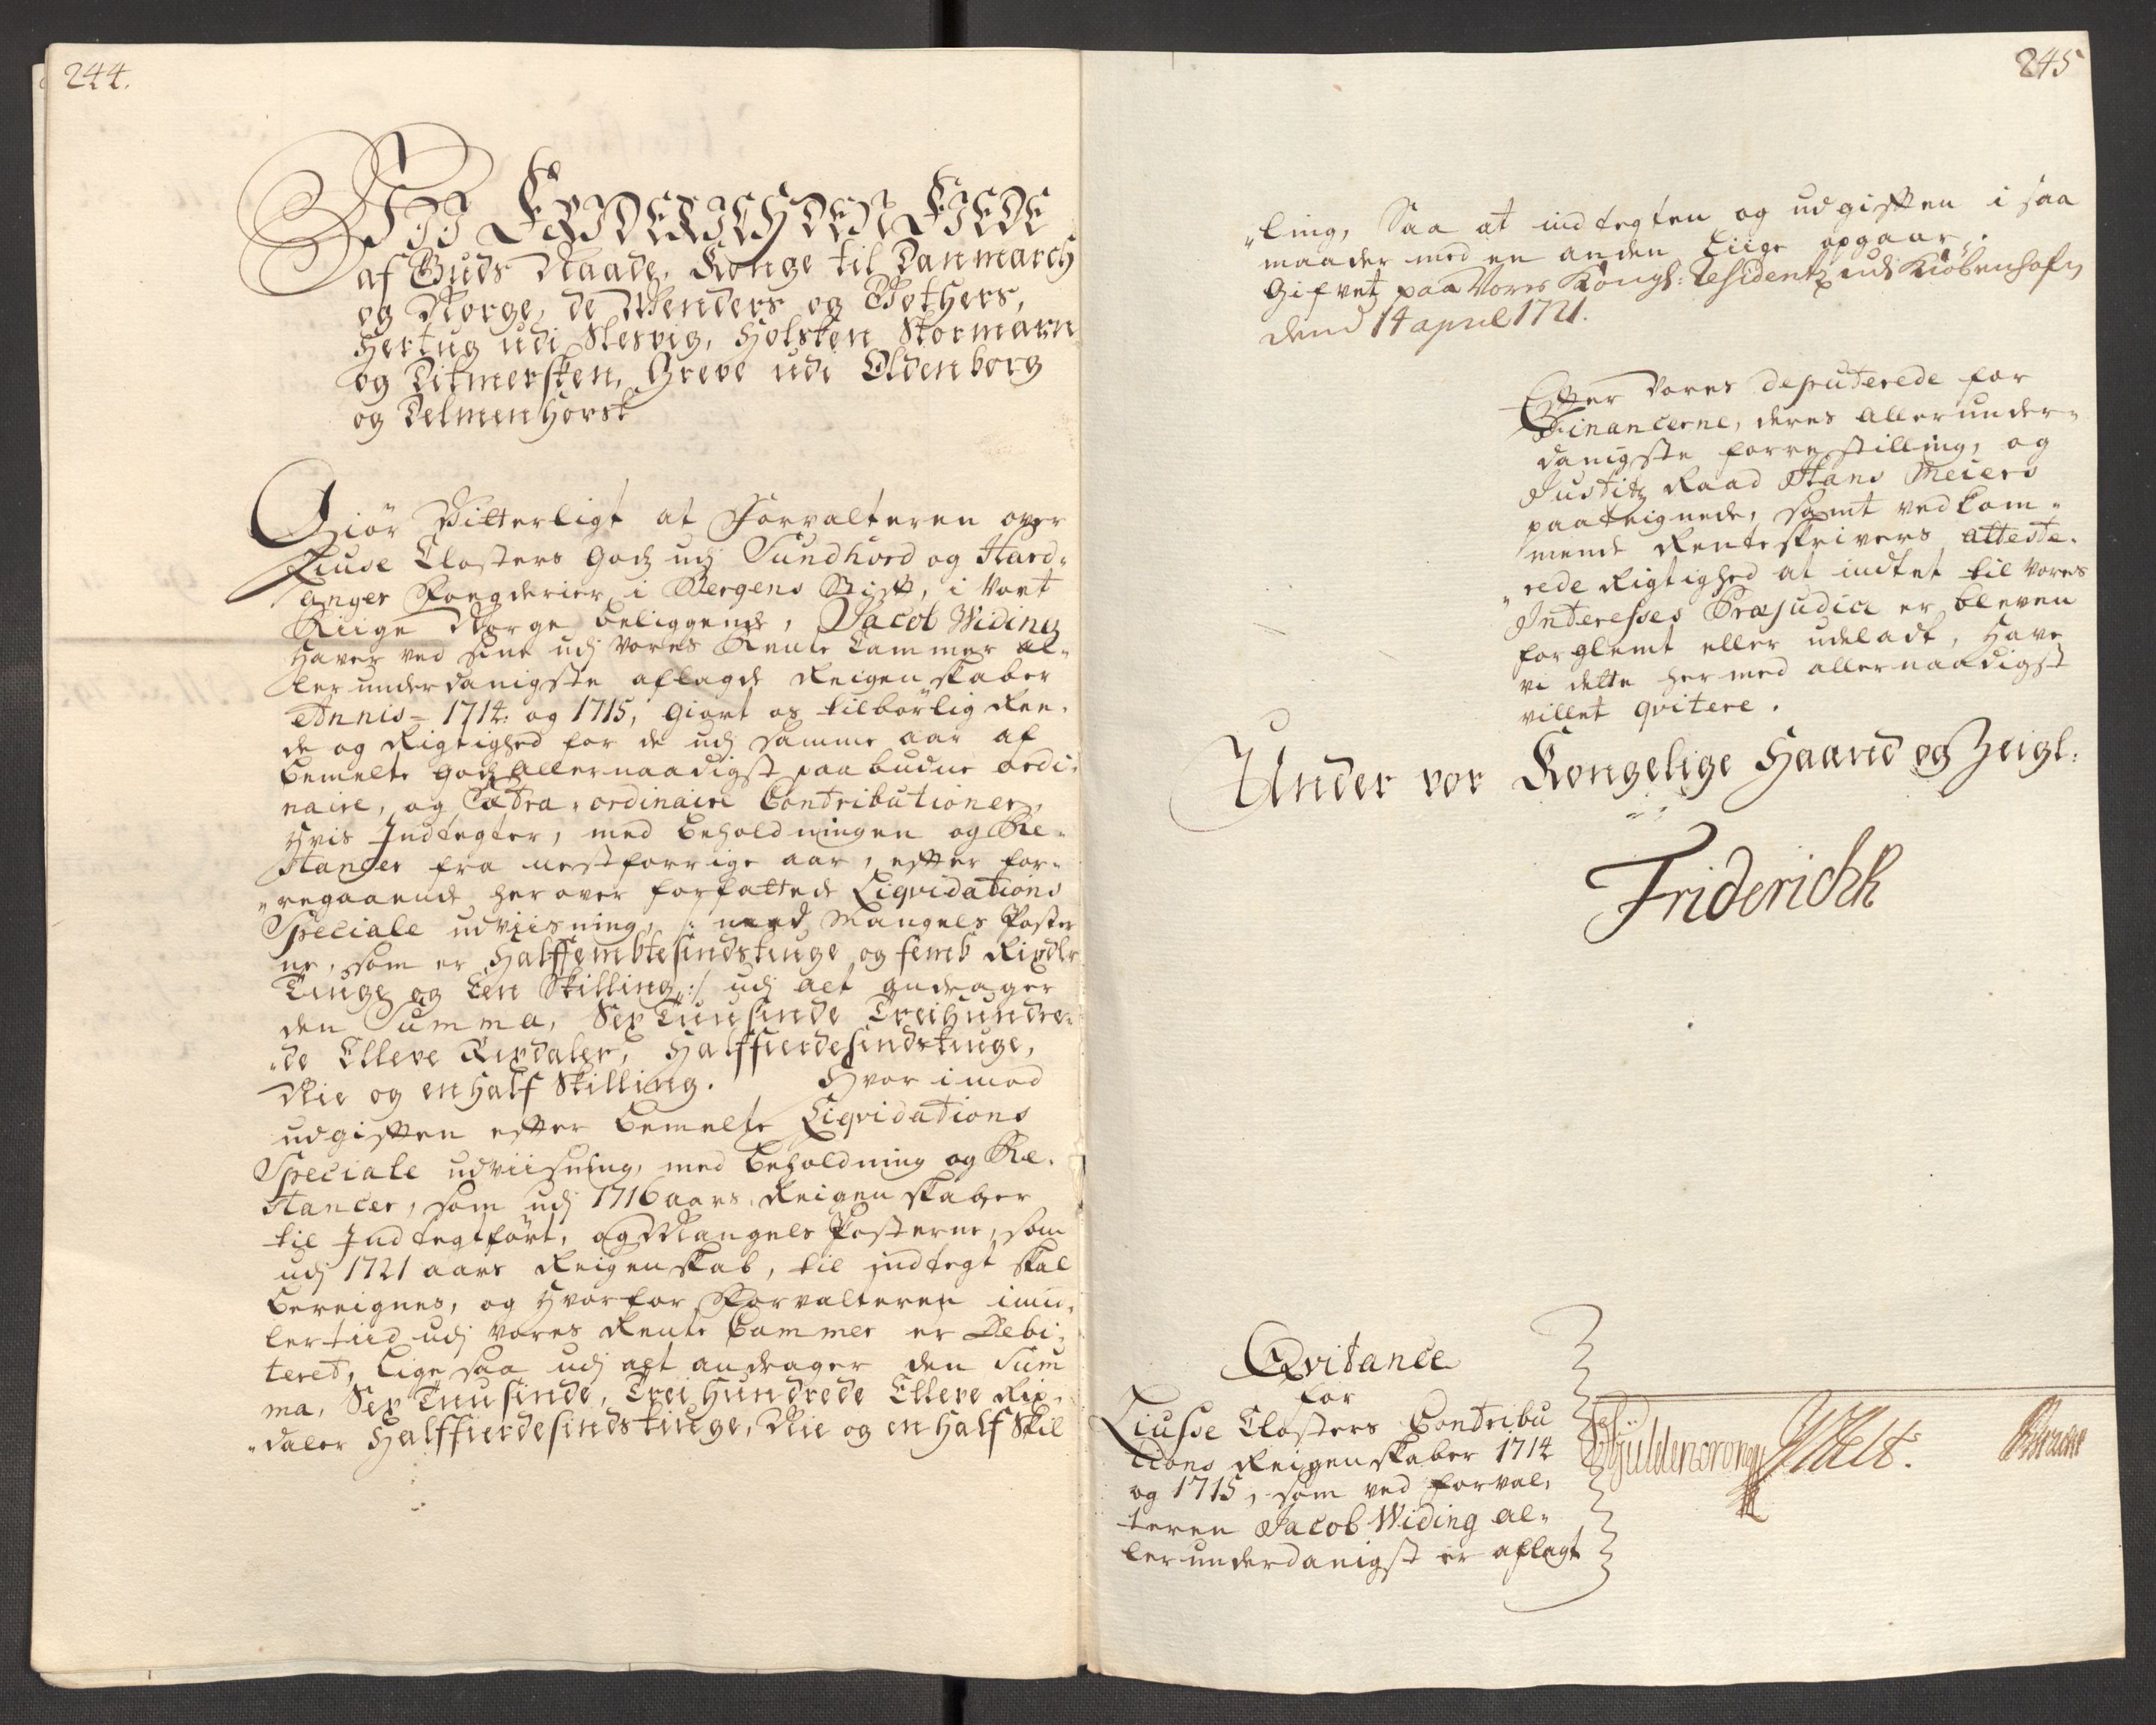 244.
Wii Friderich den Fierde
af Guds Naade, Konge til Danmarch
og Norge, de Wenders og Gothers,
Hertug udi Slesvig, Holsten Stormarn
og Ditmersken, Greve udi Oldenborg
og Delmenhorst
Giör Vitterligt at Forvalteren over
Liuse Closters Godz udj Sundhord og Hard-
anger Fougderier i Bergens Stift, i Vort
Riige Norge beliggende, Jacob Widing
Haver ved sine udj Vores Rente Cammer al-
ler underdanigste aflagde Reigenskaber
Annis 1714. og 1715, giort os tilbörlig Ree-
de og Rigtighed for de udj samme aar af
bemelte godz allernaadigst paabudne ordi-
naire, og Extra-ordinaire Contributioner,
Hvis Indtegter, med beholdningen og Re-
stancer fra nestforrige aar, efter for-
"regaaende her over forfattede Liqvidations
Speciale udviisning, /: med Mangels Poster
ne, som er Halffembtesindstiuge og femb Rixdlr
Tiuge og Een Skilling :/ udj alt andrager
den Summa, Sex Tuusinde Treihundre-
"de Elleve Rixdaler, Halffierdesindstiuge,
Nie og en half Skilling. Hvor imod
udgiften efter bemelte Liqvidations
Speciale udviisning, med beholdning og Re-
stancer, som udj 1716 aars Reigenskaber
til Indtegt fört, og Mangels Posterne, som
udj 1721 aars Reigenskab, til indtegt skal
bereignes, og hvorfor Forvalteren imid-
lertiid udj Vores Rente Cammer er Debi-
teret, lige saa udj alt andrager den Sum
ma, Sex Tuusinde, Trei Hundrede Elleve Rix-
"daler Halffierdesindstiuge, Nie og en half Skil
245
"ling, Saa at indtegten og udgiften i saa
maader med en anden liige opgaar.
Gifvet paa Vores Kongl: Residentz udi Kiöbenhafn
dend 14 april 1721.
Efter Vores deputerede for
Financerne, deres allerunder-
danigste forrestilling, og
Justitz Raad Hans Meiers
paateignede, samt vedkom-
mende Renteskrivers atteste-
"rede Rigtighed at indtet til Vores
Interesses Præjudice er bleven
forglemt eller udeladt, have
vi dette her med allernaadigst
villet qvitere.
Under vor Kongelige Haand og Zeigl:
Friderich R
Qvitance
for
Liusse Closters Contribu
tions Reigenskaber 1714
og 1715, som ved forval-
teren Jacob Widing al-
lerunderdanigst er aflagt